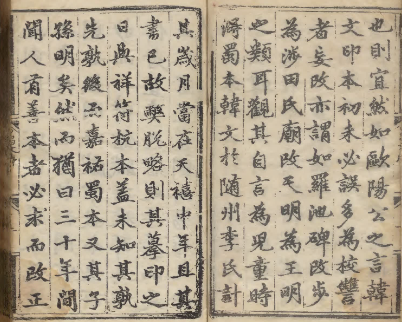 也則宜然如歐陽公之言韓
文印本初未必誤多為校讐
者妄改亦謂如羅池碑改步
為涉田氏廟改天明為王明
之類耳觀其自言為兒童時
得蜀本韓文於隨州李氏計
其歲月當在天禧中年且其
書已故弊脫略則其摹印之
日與祥符杭本盖未知其孰
先孰後而嘉祐蜀本又其子
孫明矣然而猶曰三十年間
聞人有善本者必求而改正